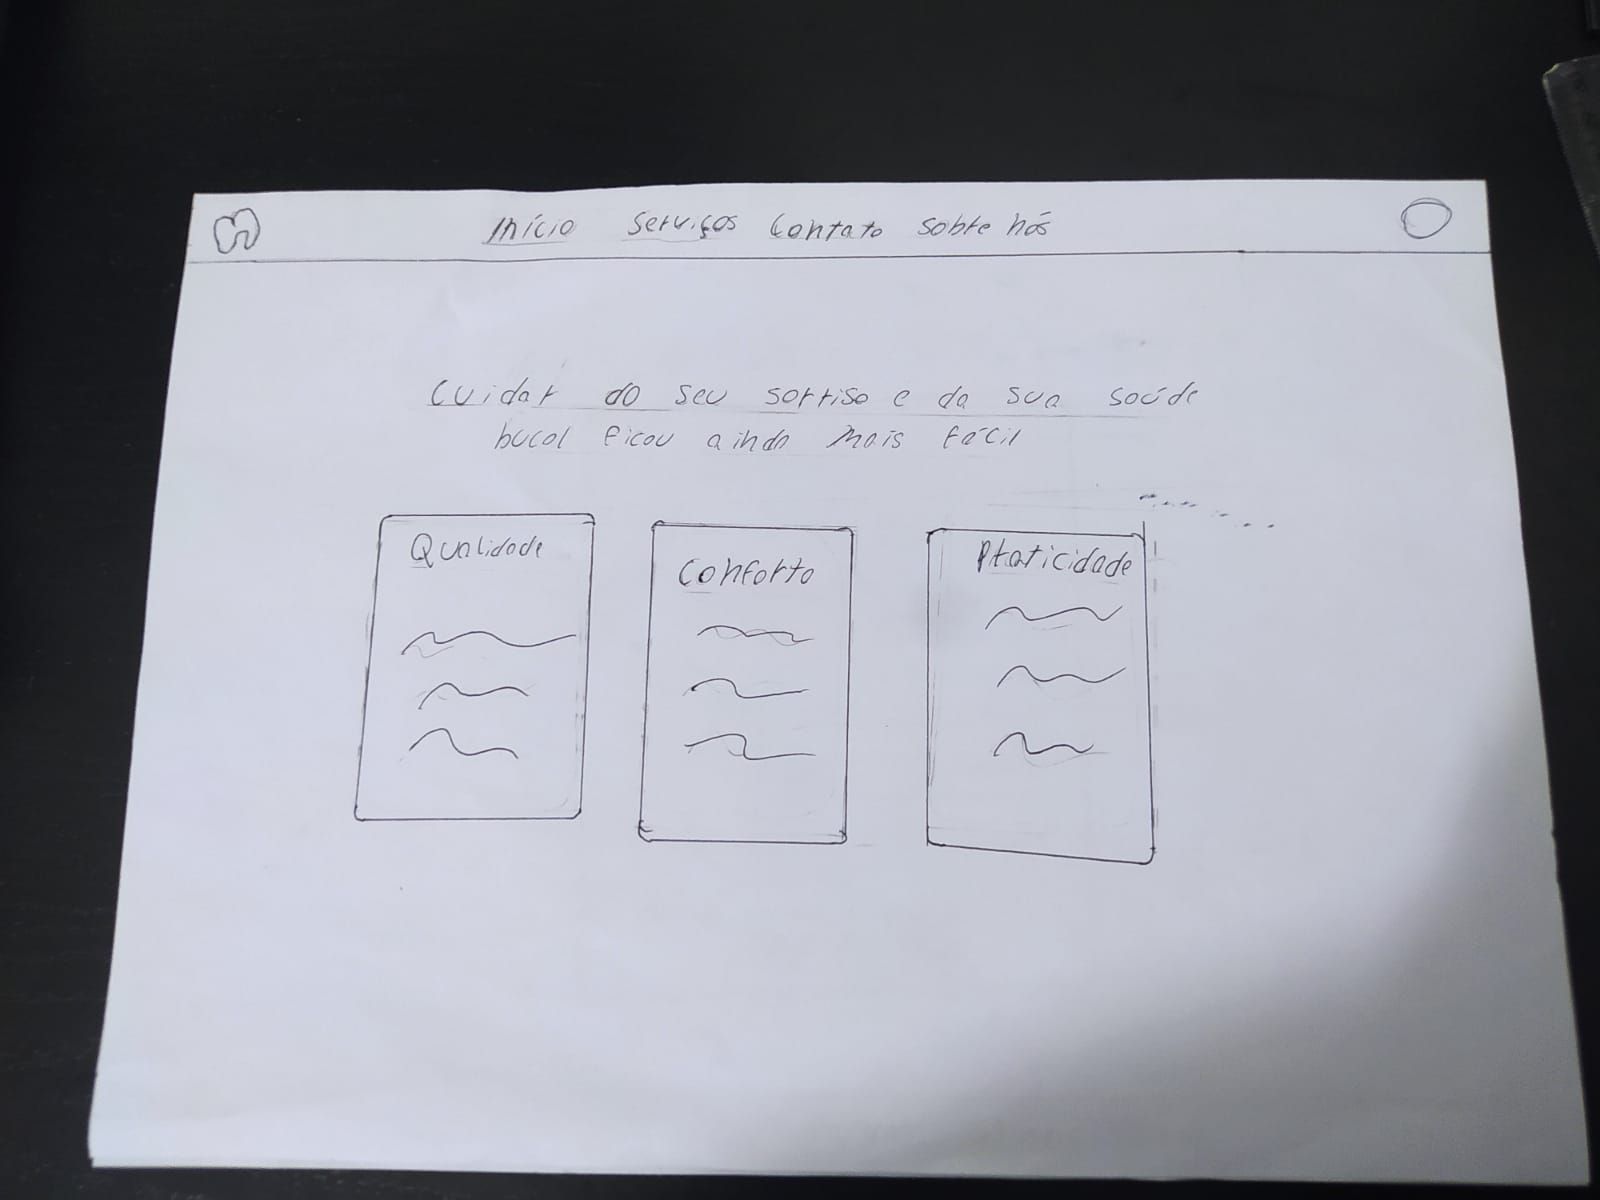 Início Serviços Contato Sobre nós
Cuidar do seu sorriso e da sua saúde
bucal ficou ainda mais fácil
Qualidade
Conforto
Praticidade